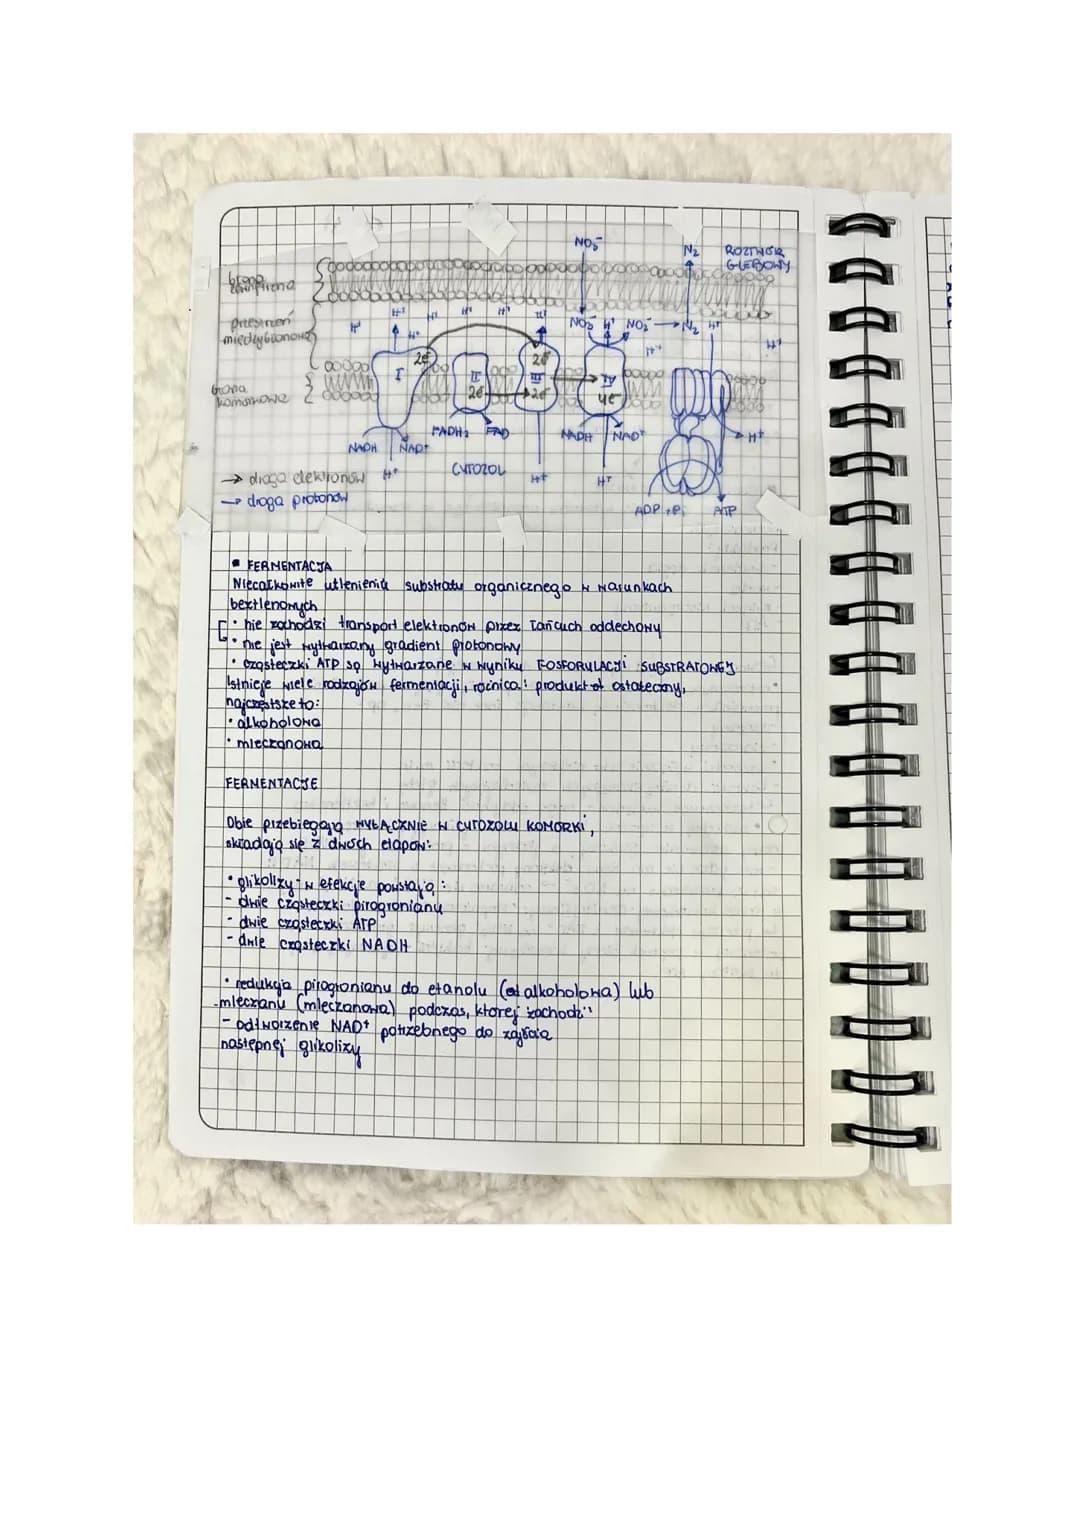 NO₃⁻
N₂
ROZTWÓR
GLEBOWY
błona
zewnętrzna
przestrzeń
międzybłonowa
H⁺ H⁺ H⁺ H⁺ H⁺ H⁺ H⁺
NO₃⁻ H⁺ NO₂⁻ → N₂ H⁺
H⁺ H⁺
błona
komórkowa
I 2e⁻ II 2e⁻ III 2e⁻ 2e⁻ IV 4e⁻
NADH NAD⁺ FADH₂ FAD NADH NAD⁺ H⁺
CYTOZOL
H⁺ H⁺ H⁺
→ droga elektronów
→ droga protonów
ADP + Pi ATP
▪ FERMENTACJA
Niecałkowite utlenienie substratu organicznego w warunkach
beztlenowych
• nie zachodzi transport elektronów przez łańcuch oddechowy
• nie jest wytwarzany gradient protonowy
• cząsteczki ATP są wytwarzane w wyniku FOSFORYLACJI SUBSTRATOWEJ
Istnieje wiele rodzajów fermentacji, różnica: produkt ostateczny,
najczęstsze to:
• alkoholowa
• mleczanowa
FERMENTACJE
Obie przebiegają WYŁĄCZNIE W CYTOZOLU KOMÓRKI,
składają się z dwóch etapów:
• glikolizy - w efekcie powstają:
- dwie cząsteczki pirogronianu
- dwie cząsteczki ATP
- dwie cząsteczki NADH
• redukcja pirogronianu do etanolu (alkoholowa) lub
mleczanu (mleczanowa) podczas, której zachodzi:
- odtworzenie NAD⁺ potrzebnego do zajścia
następnej glikolizy